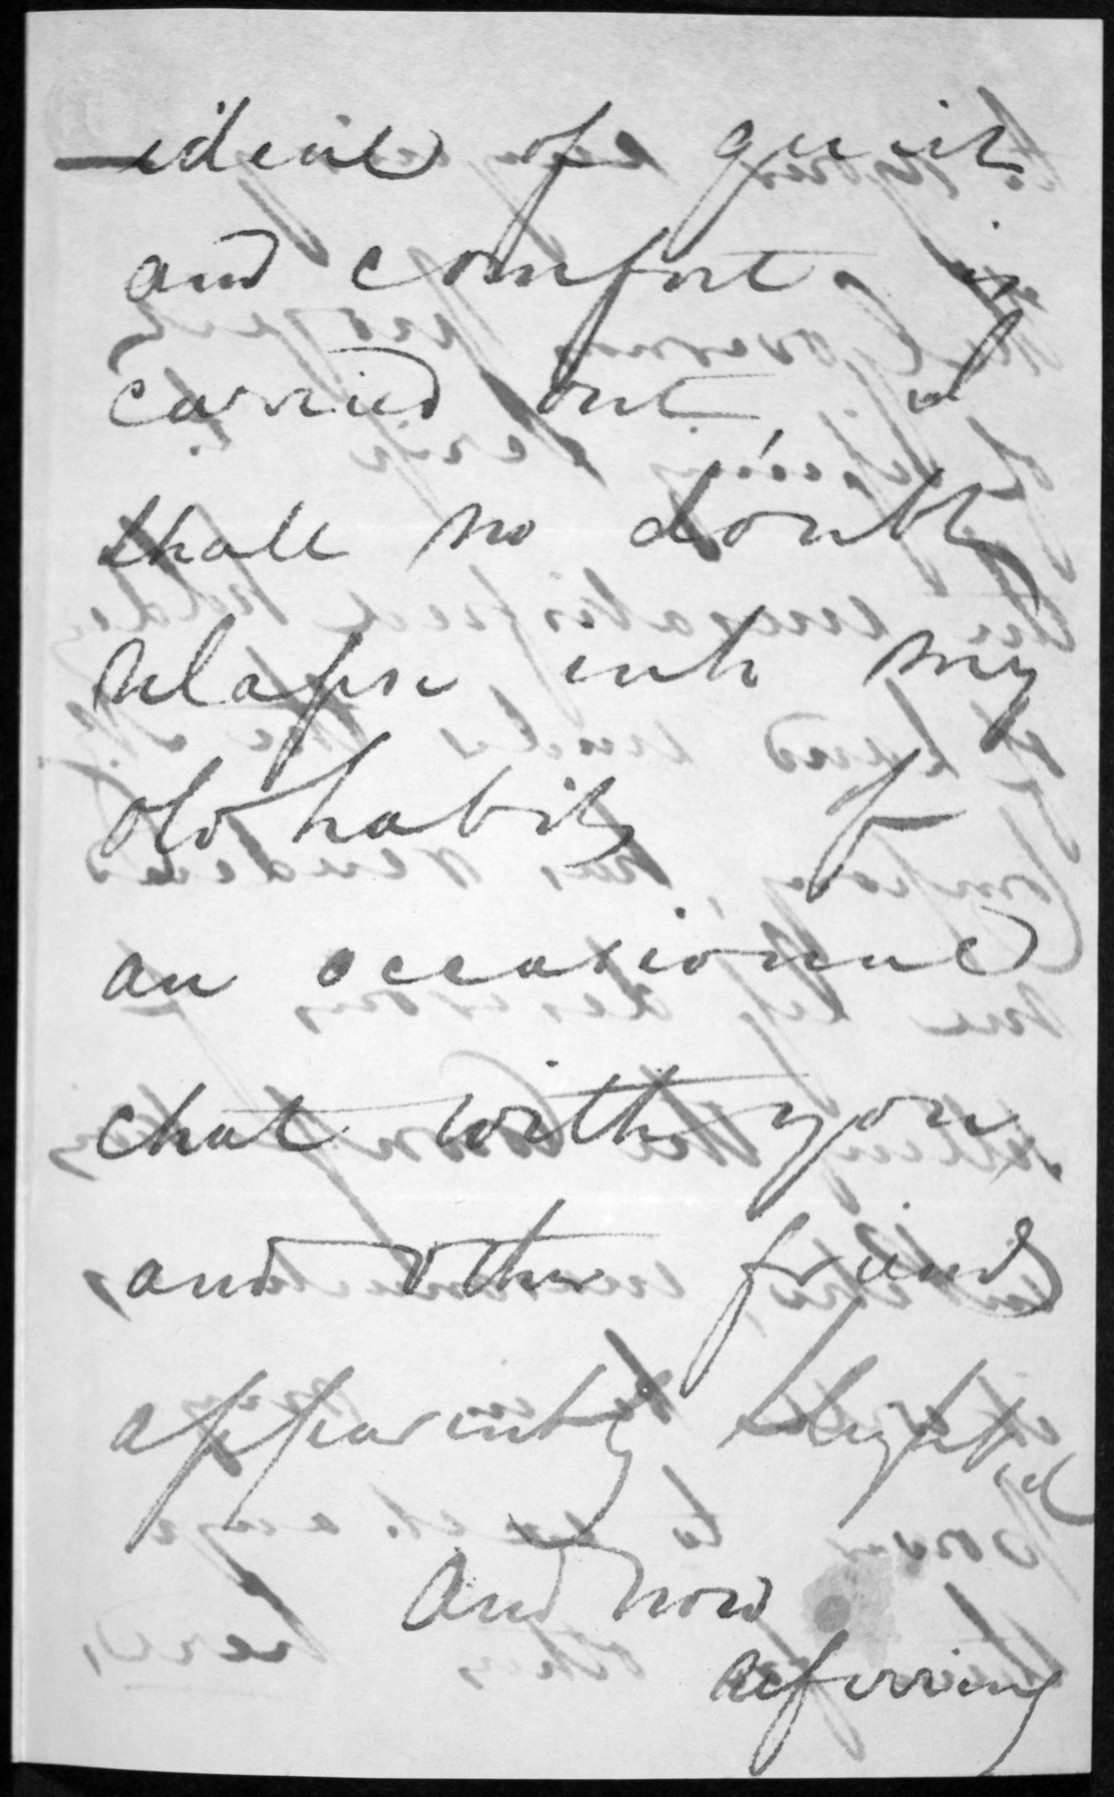 ideal of quiet
and comfort is
carried out, I
shall no doubt
relapse into my
old habits of
an occasional
chat with you
and other friend
apparently slighted
And now
referring